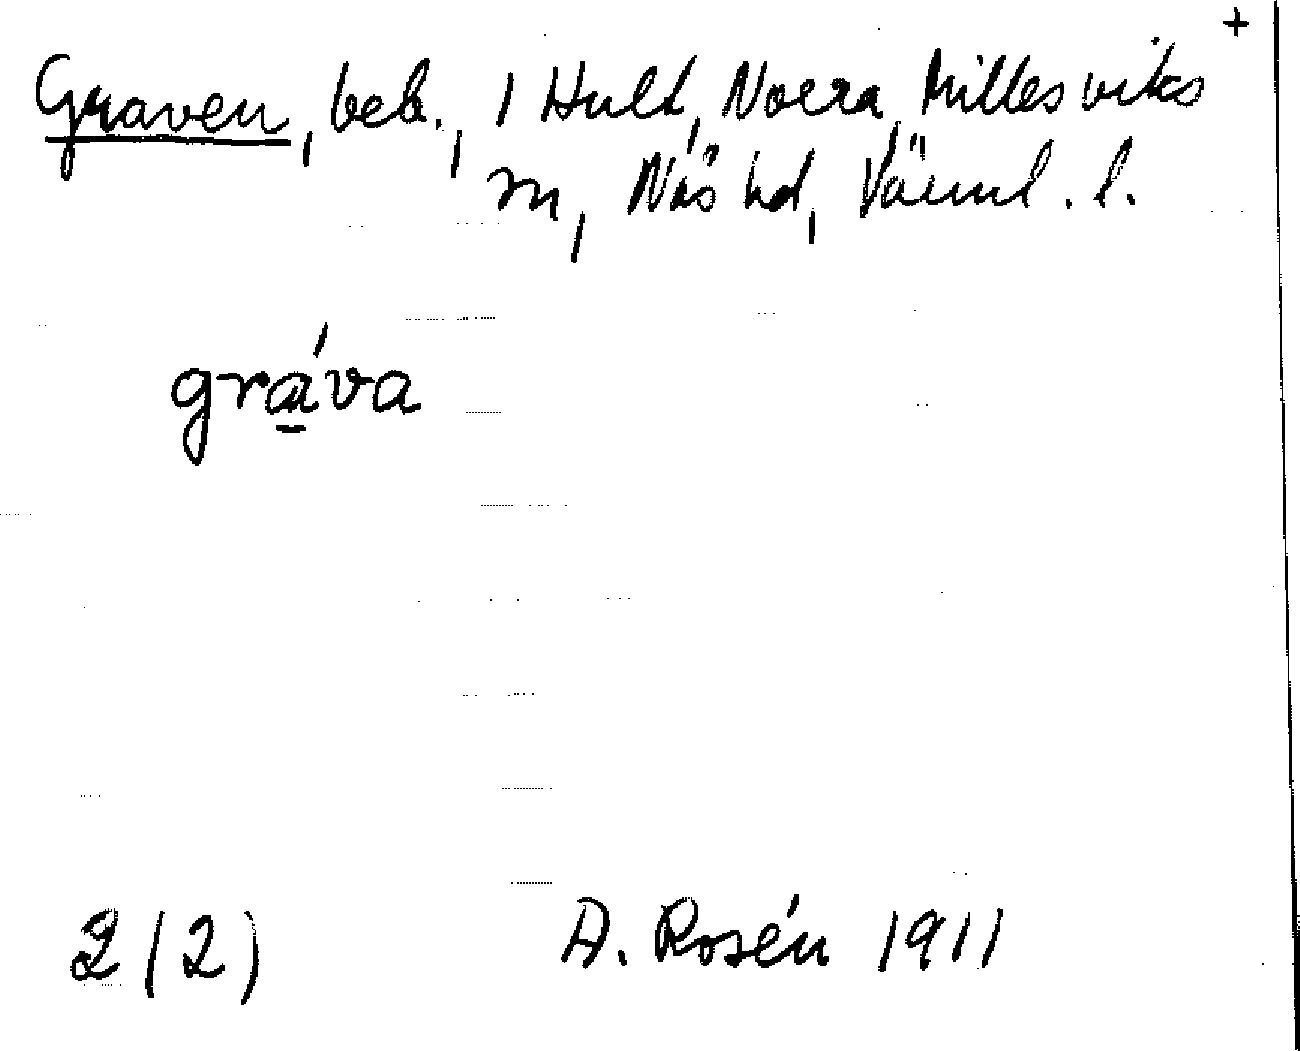 +
Graven, beb., 1 Hult, Norra, Millesviks
sn, Näs hd, Värml. l.
grá̱va
2(2) A. Rosén 1911